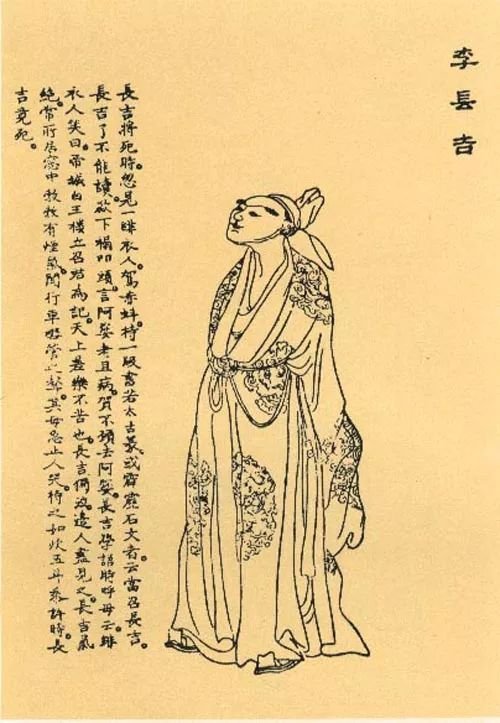 李長吉
長吉將死時。忽見一緋衣人。駕赤虬持一版書若太古篆。或霹靂石文者。云當召長吉。
長吉了不能讀。欲下榻叩頭。言阿㜷老且病。賀不願去。阿㜷。長吉學語時呼母云。緋
衣人笑曰。帝城白玉樓立召君為記。天上差樂不苦也。長吉獨泣。邊人盡見之。長吉氣
絕。常所居窓中勃勃有煙氣。聞行車嘒管之聲。其母急止人哭。待之如炊五斗黍許時。長
吉竟死。